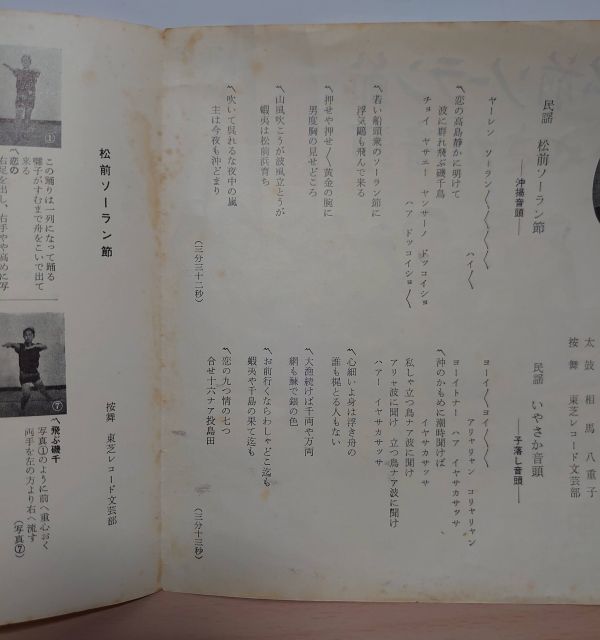 太鼓 相馬 八重子
按舞 東芝レコード文芸部
民謡 松前ソーラン節
――沖揚音頭――
ヤーレン ソーラン〳〵〳〵〳〵〳〵
ハイ〳〵
〽恋の高島静かに明けて
波に群れ飛ぶ磯千鳥
チョイ ヤサエー ヤンサーノ ドッコイショ
ハア ドッコイショ〳〵
〽若い船頭衆のソーラン節に
浮気鷗も飛んで来る
〽押せや押せ〳〵黄金の腕に
男度胸の見せどころ
〽山風吹こうが波風立とうが
蝦夷は松前浜育ち
〽吹いて呉れるな夜中の嵐
主は今夜も沖どまり
(三分三十二秒)
民謡 いやさか音頭
――子落し音頭――
ヨーイ〳〵ヨイ〳〵〳〵
アリャリャン コリャリャン
ヨーイトナー ハア イヤサカサッサ
〽沖のかもめに潮時聞けば
イヤサカサッサ
私しゃ立つ鳥ナア波に聞け
アリャ波に聞け 立つ鳥ナア波に聞け
ハアー イヤサカサッサ
〽心細いよ身は浮き舟の
誰も梶とる人もない
〽大漁続けば千両や万両
網も鰊で銀の色
〽お前行くならわしゃどこ迄も
蝦夷や千島の果て迄も
〽恋の九つ情の七つ
合せ十六ナア投島田
(三分十三秒)
松前ソーラン節
按舞 東芝レコード文芸部
①
この踊りは一列になって踊る
囃子がすむまで舟をこいで出て
来る
〽恋の
右足を出し、右手やや高めに写
⑦
〽飛ぶ磯千
写真①のように前へ重心おく
両手を左の方より右へ流す
(写真⑦)